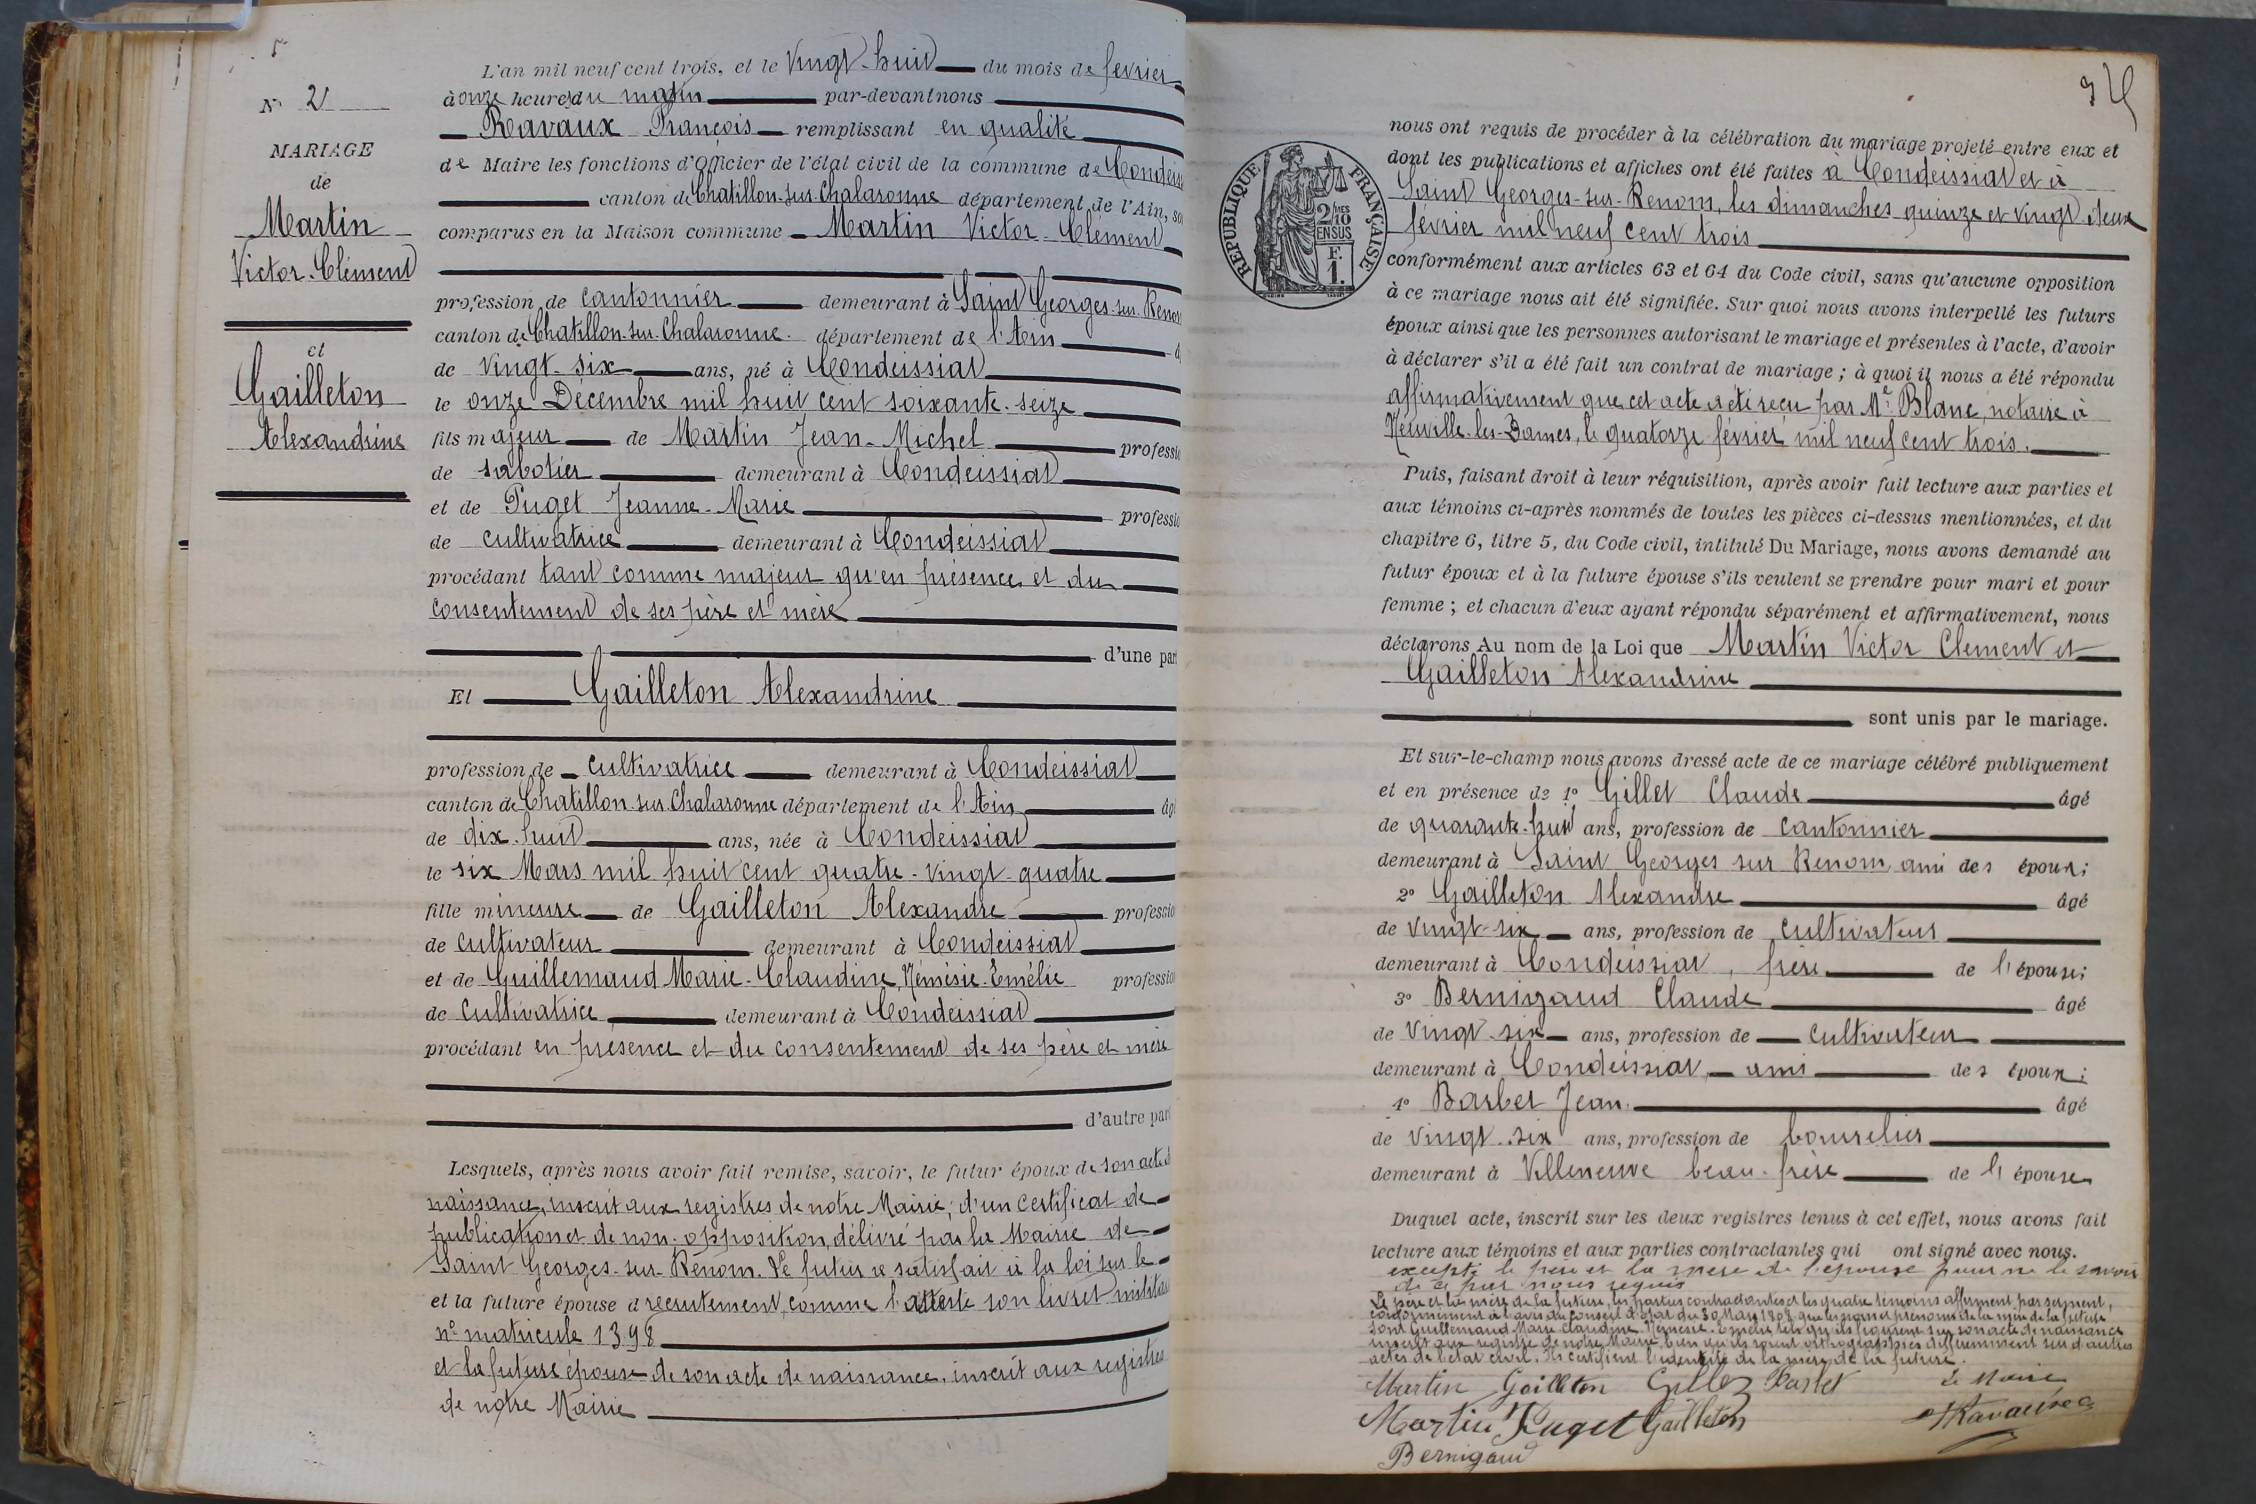 N° 2
MARIAGE
de
Martin
Victor-Clément
et
Gailleton
Alexandrine
L'an mil neuf cent trois, et le vingt-huit du mois de février
à onze heures du matin par-devant nous
Ravaux François remplissant en qualité
de Maire les fonctions d'Officier de l'état civil de la commune de Condeiss
canton de Chatillon-sur-Chalaronne département de l'Ain, so
comparus en la Maison commune Martin Victor-Clément
profession de cantonnier demeurant à Saint Georges-sur-Renon
canton de Chatillon-sur-Chalaronne département de l'Ain
de vingt-six ans, né à Condeissiat
le onze Décembre mil huit cent soixante-seize
fils majeur de Martin Jean-Michel professi
de sabotier demeurant à Condeissiat
et de Puget Jeanne-Marie professi
de cultivatrice demeurant à Condeissiat
procédant tant comme majeur qu'en présence et du
consentement de ses père et mère
d'une par
Et Gailleton Alexandrine
profession de cultivatrice demeurant à Condeissiat
canton de Chatillon-sur-Chalaronne département de l'Ain âg
de dix-huit ans, née à Condeissiat
le six Mars mil huit cent quatre-vingt-quatre
fille mineure de Gailleton Alexandre professio
de cultivateur demeurant à Condeissiat
et de Guillemaud Marie-Claudine, Némésie-Emélie professio
de cultivatrice demeurant à Condeissiat
procédant en présence et du consentement de ses père et mère
d'autre par
Lesquels, après nous avoir fait remise, savoir, le futur époux de son acte d
naissance, inscrit aux registres de notre Mairie; d'un certificat de
publication et de non-opposition, délivré par la Mairie de
Saint Georges-sur-Renom. Le futur a satisfait à la loi sur le
et la future épouse d recrutement, comme l'atteste son livret militai
n° matricule 1398
et la future épouse de son acte de naissance, inscrit aux registres
de notre Mairie
RÉPUBLIQUE FRANÇAISE
2/10 EN SUS
F.
1.
nous ont requis de procéder à la célébration du mariage projeté entre eux et
dont les publications et affiches ont été faites à Condeissiat et à
Saint Georges-sur-Renom, les dimanches quinze et vingt-deux
février mil neuf cent trois
conformément aux articles 63 et 64 du Code civil, sans qu'aucune opposition
à ce mariage nous ait été signifiée. Sur quoi nous avons interpellé les futurs
époux ainsi que les personnes autorisant le mariage et présentes à l'acte, d'avoir
à déclarer s'il a été fait un contrat de mariage; à quoi il nous a été répondu
affirmativement que cet acte a été reçu par Me Blanc, notaire à
Neuville-les-Dames, le quatorze février mil neuf cent trois.
Puis, faisant droit à leur réquisition, après avoir fait lecture aux parties et
aux témoins ci-après nommés de toutes les pièces ci-dessus mentionnées, et du
chapitre 6, titre 5, du Code civil, intitulé Du Mariage, nous avons demandé au
futur époux et à la future épouse s'ils veulent se prendre pour mari et pour
femme; et chacun d'eux ayant répondu séparément et affirmativement, nous
déclarons Au nom de la Loi que Martin Victor Clement et
Gailleton Alexandrine
sont unis par le mariage.
Et sur-le-champ nous avons dressé acte de ce mariage célébré publiquement
et en présence de 1° Gillet Claude âgé
de quarante-huit ans, profession de cantonnier
demeurant à Saint Georges sur Renom, ami des époux;
2° Gailleton Alexandre âgé
de vingt-six ans, profession de cultivateur
demeurant à Condeissiat, frère de l'épouse;
3° Bernigaud Claude âgé
de vingt-six ans, profession de cultivateur
demeurant à Condeissiat, ami des époux;
4° Barbet Jean. âgé
de vingt-six ans, profession de bourrelier
demeurant à Villeneuve beau-frère de l'épouse
Duquel acte, inscrit sur les deux registres tenus à cet effet, nous avons fait
lecture aux témoins et aux parties contractantes qui ont signé avec nous.
excepté le père et la mère de l'épouse pour ne le savoir
de ce par nous requis
Le père et la mère de la future, les parties contractantes et les quatre témoins affirment par serment,
conformément à l'avis du Conseil d'Etat du 30 Mars 1808, que les noms et prénoms de la mère de la future
sont Guillemaud Marie Claudine Némésie-Emélie tels qu'ils figurent sur son acte de naissance
inscrit aux registres de notre Mairie, bien qu'ils soient orthographiés différemment sur d'autres
actes de l'état civil. Ils certifient l'identité de la mère de la future.
Martin Gailleton Gillet Barbet Le Maire
Martin Puget Gailleton Ravaux
Bernigaud